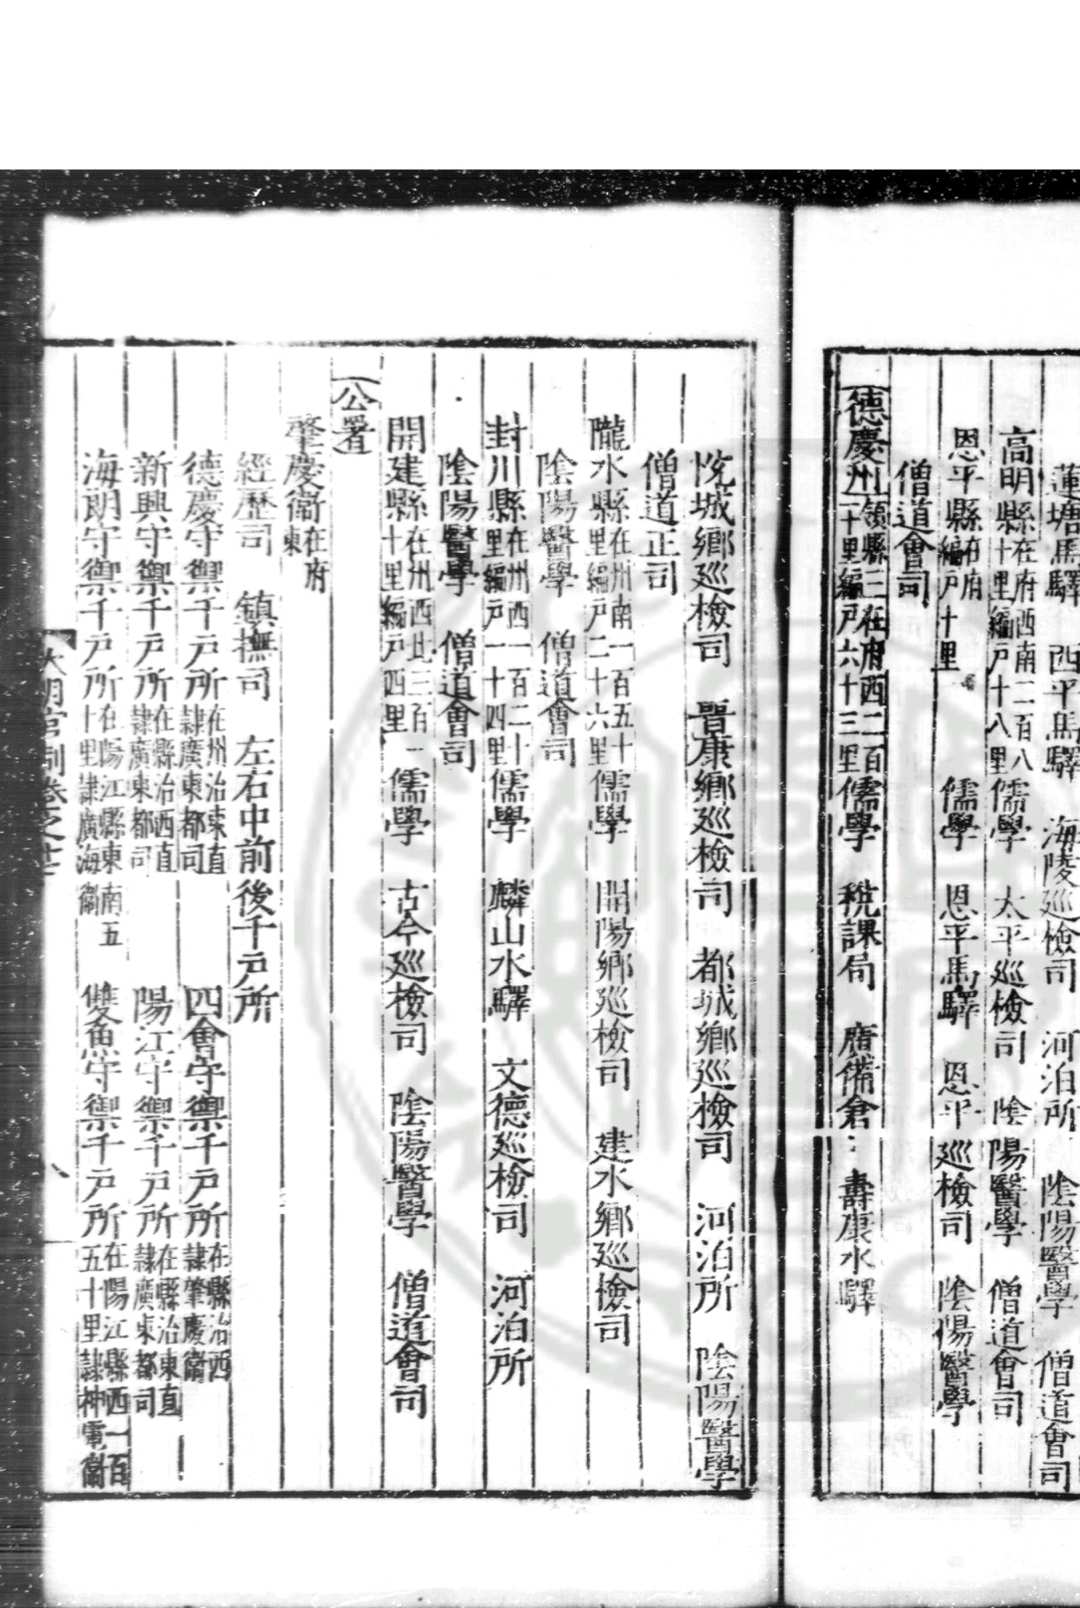 蓮塘馬驛　西平馬驛　海陵巡檢司　河泊所　陰陽醫學　僧道會司
高明縣在府西南二百八十里編戶十八里儒學　太平巡檢司　陰陽醫學　僧道會司
恩平縣在府編戶十里　儒學　恩平馬驛　恩平巡檢司　陰陽醫學
僧道會司
德慶州領縣三在府西二百二十里編戶六十三里儒學　稅課局　廣備倉　壽康水驛
悅城鄉巡檢司　晉康鄉巡檢司　都城鄉巡檢司　河泊所　陰陽醫學
僧道正司
隴水縣在州南一百五十里編戶二十六里儒學　開陽鄉巡檢司　建水鄉巡檢司
陰陽醫學　僧道會司
封川縣在州西一百二十里編戶一十四里儒學　麟山水驛　文德巡檢司　河泊所
陰陽醫學　僧道會司
開建縣在州西北三百一十里編戶四里儒學　古令巡檢司　陰陽醫學　僧道會司
公署
肇慶衛在府東
經歷司　鎮撫司　左右中前後千戶所
德慶守禦千戶所在州治東直隸廣東都司　四會守禦千戶所在縣治西隸肇慶衛
新興守禦千戶所在縣治西直隸廣東都司　陽江守禦千戶所在縣治東直隸廣東都司
海朗守禦千戶所在陽江縣東南五十里隸廣海衛　雙魚守禦千戶所在陽江縣西一百五十里隸神電衛
大明官制卷之
八